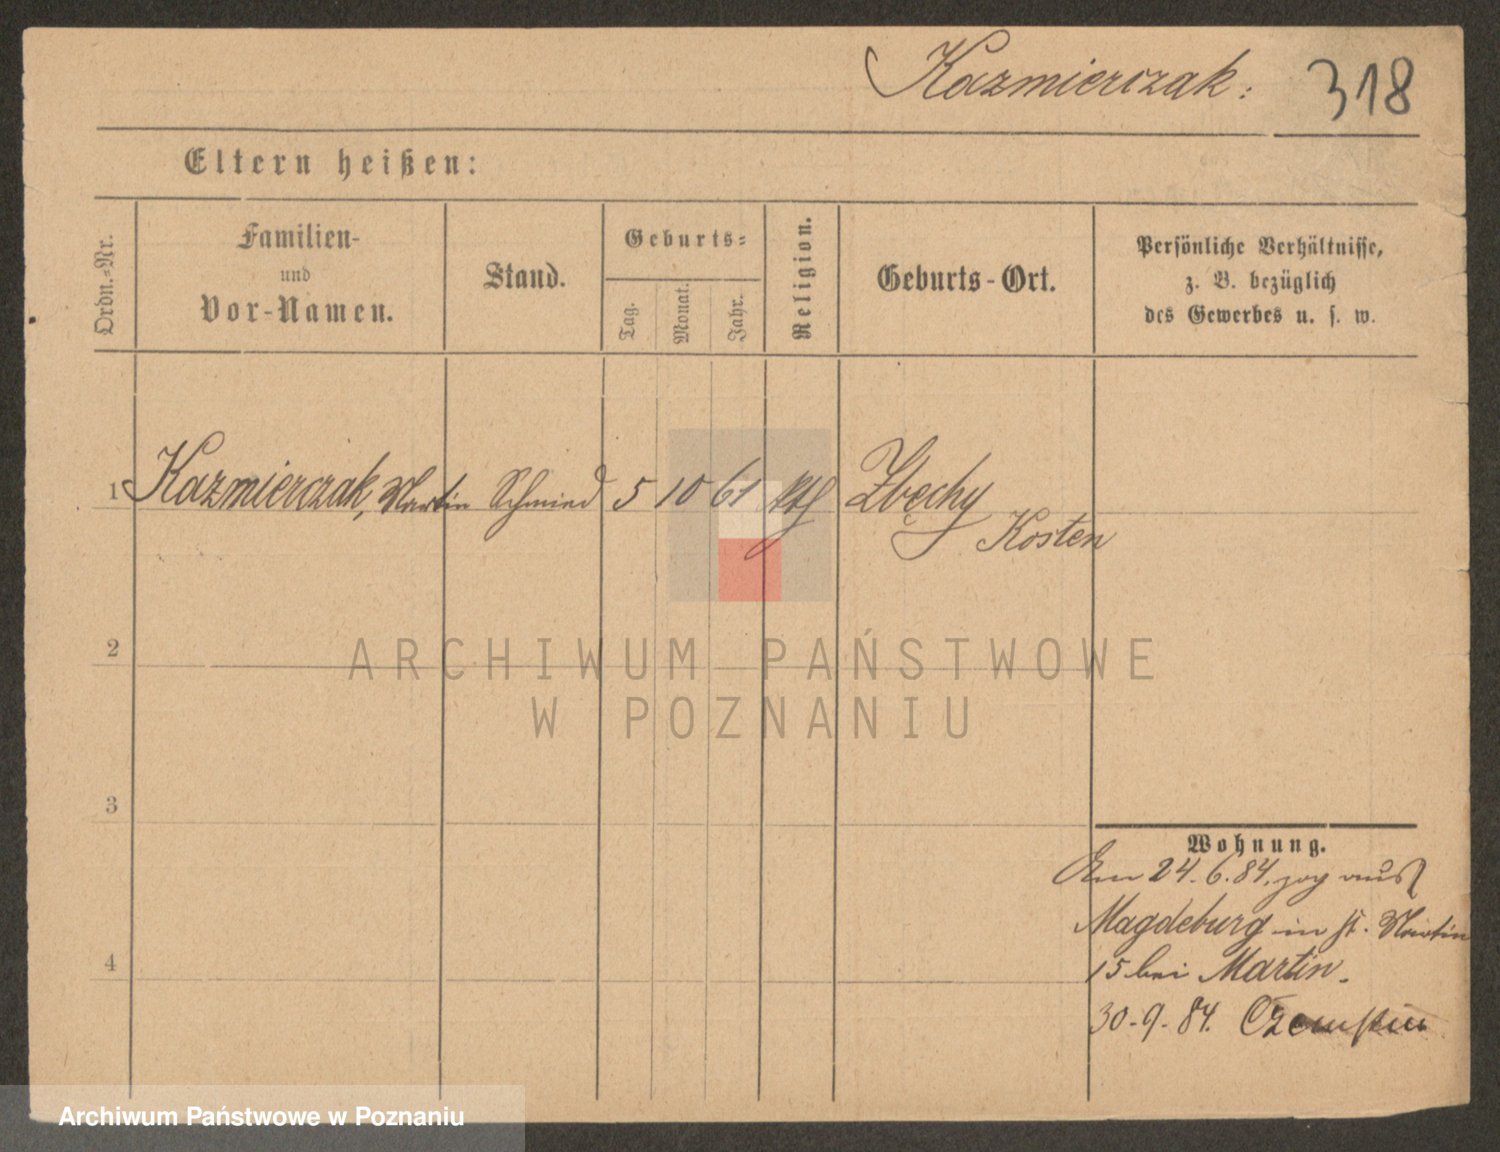 Kazmierczak: 318
Eltern heißen:
Ordn.-Nr.
Familien-
und
Vor-Namen.
Stand.
Geburts-
Tag.
Monat.
Jahr.
Religion.
Geburts-Ort.
Persönliche Verhältnisse,
z. B. bezüglich
des Gewerbes u. s. w.
1 Kazmierczak, Martin Schmied 5 10 61 kth Zbęchy
Kosten
2
ARCHIWUM PAŃSTWOWE
W POZNANIU
3
Wohnung.
Am 24.6.84. zog aus
Magdeburg in St. Martin
15 bei Martin.
4
30.9.84.
Archiwum Państwowe w Poznaniu